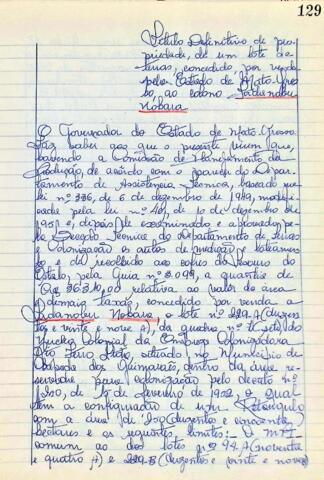 129
Título Definitivo de pro
priedade, de um lote de
terras, concedido por venda
pelo Estado de Mato-Gros
so, ao colono
Nobara
O Governador do Estado de Mato-Grosso
Faz saber aos que o presente virem que,
havendo a Comissão de Planejamento da
Produção, de acôrdo com o parecer do Depar-
tamento de Assistencia Tecnica, baseado na
lei nº 336, de 6 de dezembro de 1949, modifi-
cada pela lei nº de 10 de dezembro de
1951 e, depois de examinado e aprovado pe-
la Secção Tecnica do Departamento de Terras
e Colonização os autos de medição e loteamen-
to e de recolhido aos cofres do Tesouro do
Estado, pela Guia nº a quantia de
Cr$ relativa ao valor da área
e demais taxas, concedido por venda a
Nobara o lote nº 229-A (duzen-
tos e vinte e nove A), da quadra nº do
Nucleo Colonial da Emprêsa Colonizadora
Rio Ferro situado no Municipio de
Chapada dos Guimarães, dentro da área re-
servada para colonização pelo decreto nº
de de fevereiro de 1952, o qual
tem a configuração de um Retangulo
com a área de 250 (duzentos e cincoenta)
hectares e os seguintes limites: O
comum ao dos lotes nº 94-A (noventa
e quatro A) e 229-B (duzentos e vinte e nove